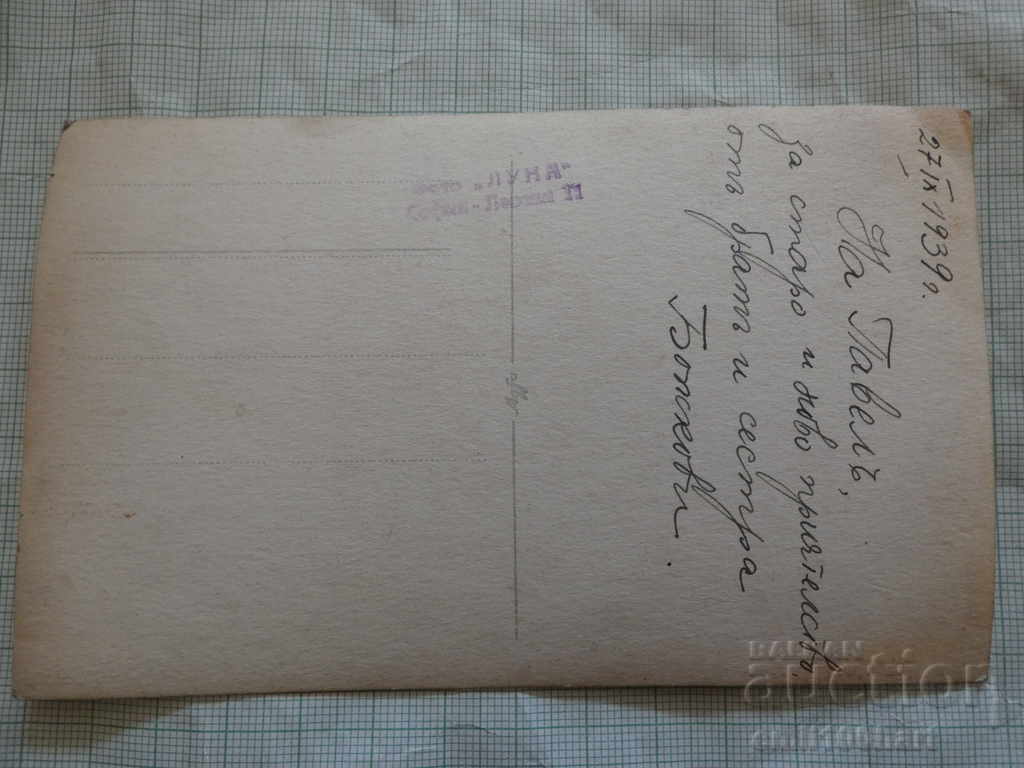 27 IX 1939 г.
На Павелъ,
за старо и ново приятелство
отъ братъ и сестра
Божкови.
Фото „ЛУНА"
София - 11
BALKAN
auction